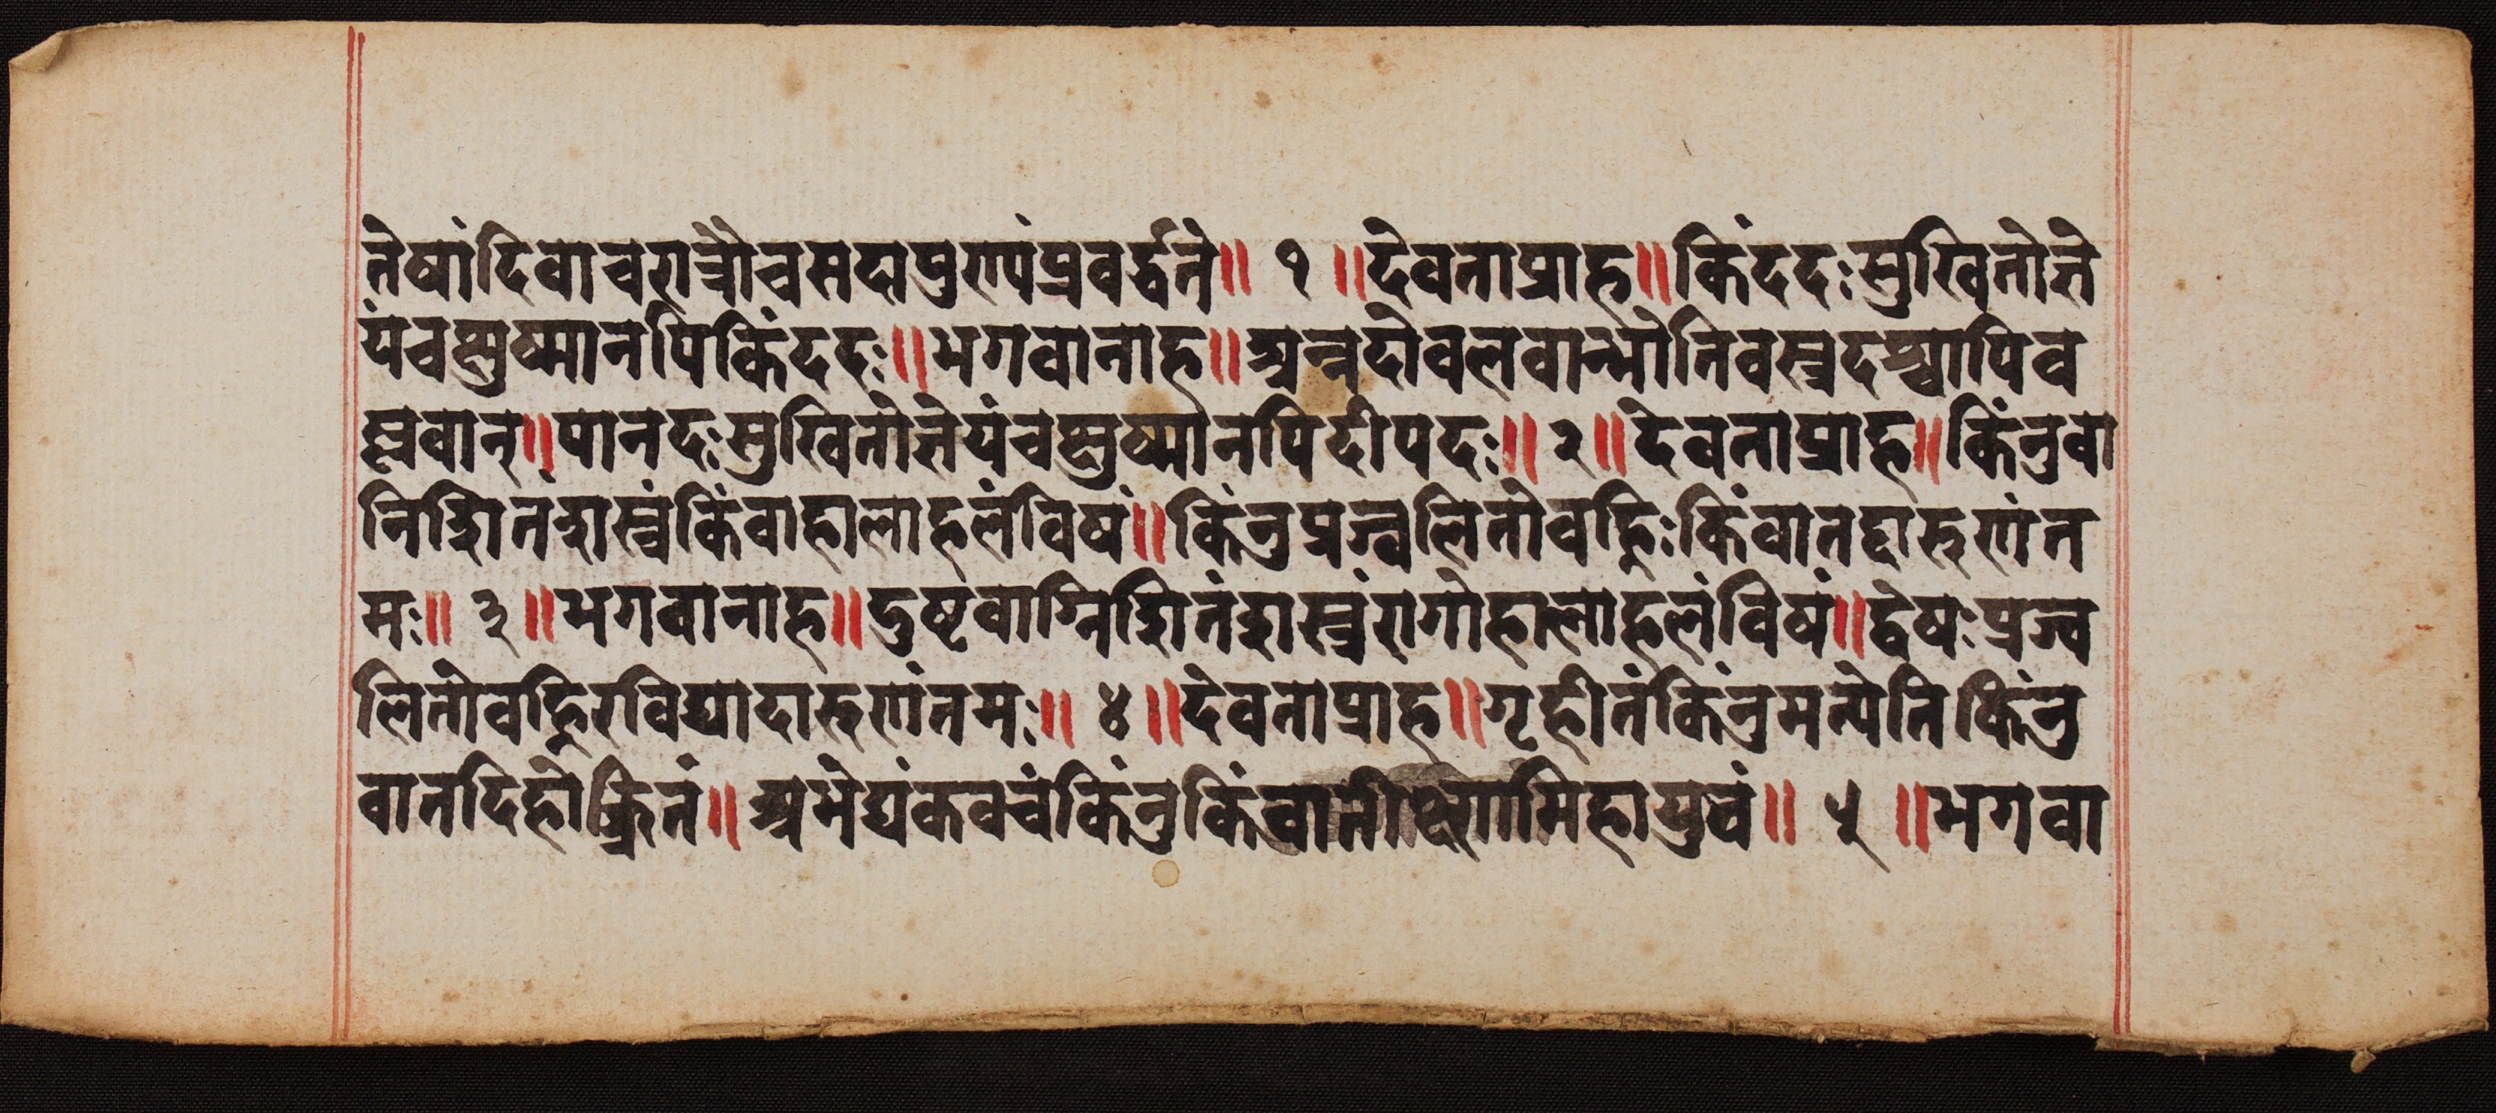 तेषां दिवा च रात्रौ च सदा पुण्यं प्रवर्द्धते॥ १ ॥देवता प्राह॥किं ददः सुखितो ज्ञे
यं चक्षुष्मानपि किं ददः॥भगवानाह॥अन्नदो वलवान्भोति वस्त्रदश्चापि व
र्ण्णवान्॥पानदः सुखितो ज्ञेयं चक्षुष्मानपि दीपदः॥ २॥देवता प्राह॥किं नु वा
निशितं शस्त्रं किं वा हालाहलं विषं॥किं नु प्रज्वलितो वह्निः किं वा तद्दारुणं त
मः॥ ३ ॥भगवानाह॥दुष्टवाग्निशितं शस्त्रं रागो हालाहलं विषं॥द्वेषः प्रज्व
लितो वह्निरविद्या दारुणं तमः॥ ४ ॥देवता प्राह॥गृहीतं किं नु मन्येति किं नु
वा तदिहोज्झितं॥अभेद्यं कवचं किं नु किं वा तीक्ष्णमिहायुधं॥ ५ ॥भगवा